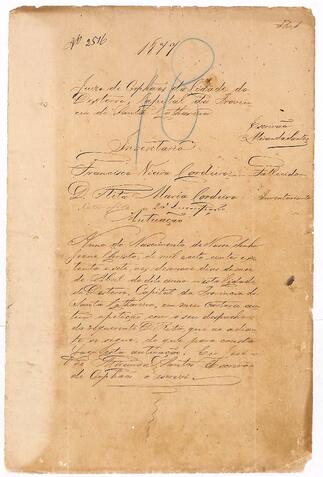 Nº 2516
1877
Juizo de Orphãos da Cidade do
Desterro, Capital da Provin
cia de Santa Catharina
Escrivão
Inventario
Francisco Vieira Cordeiro
Fallecido
D. Rita Maria Cordeiro
Inventariante
Autuação
Anno do Nascimento de Nosso Senhor
Jesus Christo, de mil oito centos e se
tenta e sete, aos dias do mez
de Abril do dito anno nesta Cidade
do Desterro, Capital da Provincia de
Santa Catharina, em meu Cartorio au
tuei a petição com o seu despacho
da requerente D. Rita, que ao adian
te se segue, do que para constar
faço esta autuação. Eu
Escrivão
de Orphãos o escrevi